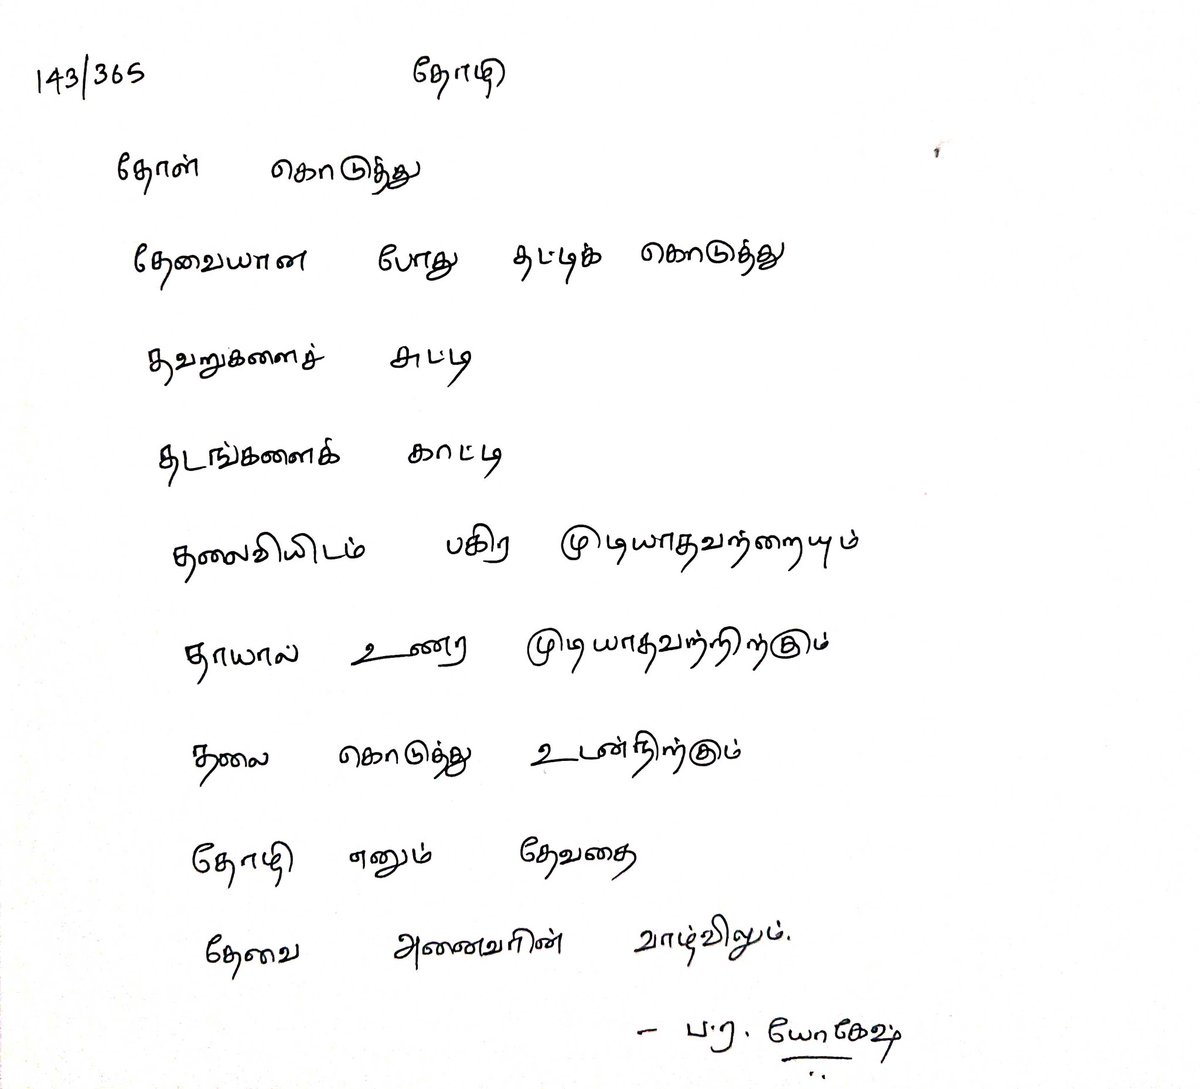 143/365 தோழி
தோள் கொடுத்து
தேவையான போது தட்டிக் கொடுத்து
தவறுகளைச் சுட்டி
தடங்களைக் காட்டி
தலைவியிடம் பகிர முடியாதவற்றையும்
தாயால் உணர முடியாதவற்றிற்கும்
தலை கொடுத்து உடன்நிற்கும்
தோழி எனும் தேவதை
தேவை அனைவரின் வாழ்விலும்.
- ப.ர. யோகேஷ்